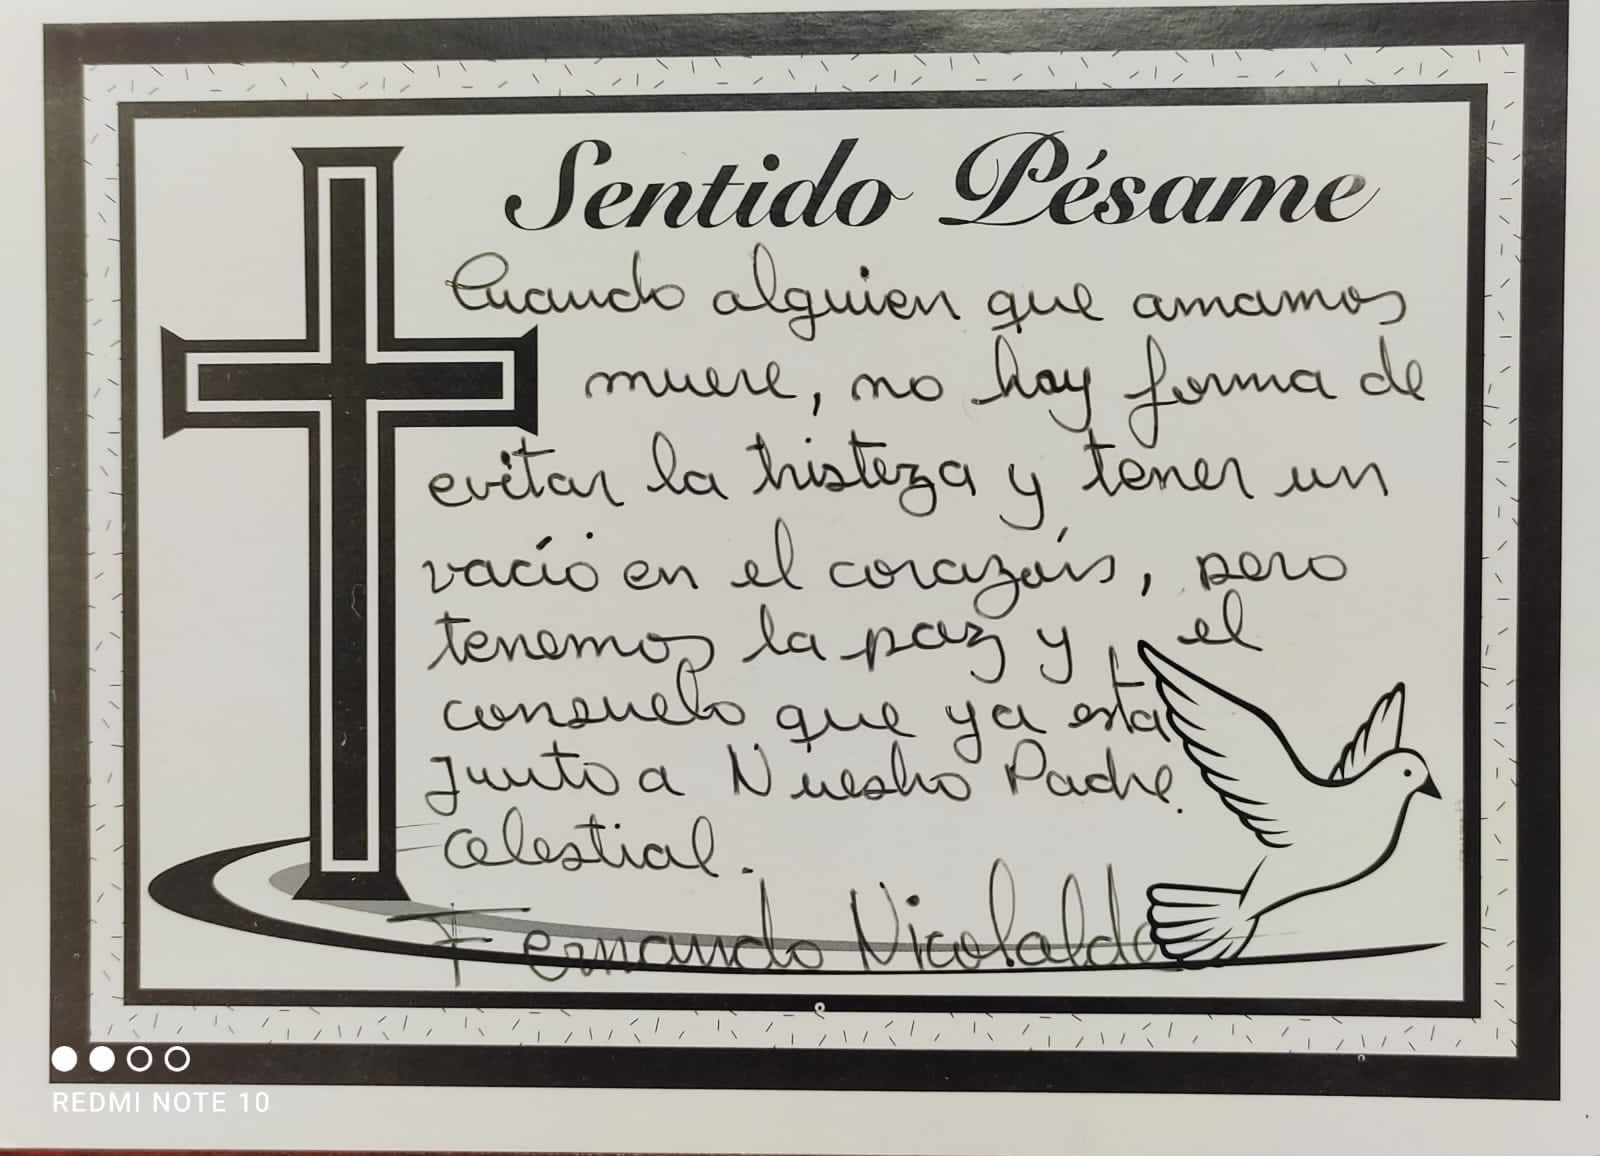 Sentido Pésame
Cuando alguien que amamos
muere, no hay forma de
evitar la tristeza y tener un
vacío en el corazón, pero
tenemos la paz y el
consuelo que ya está
junto a Nuestro Padre.
Celestial.
Fernando Nicolalde
REDMI NOTE 10